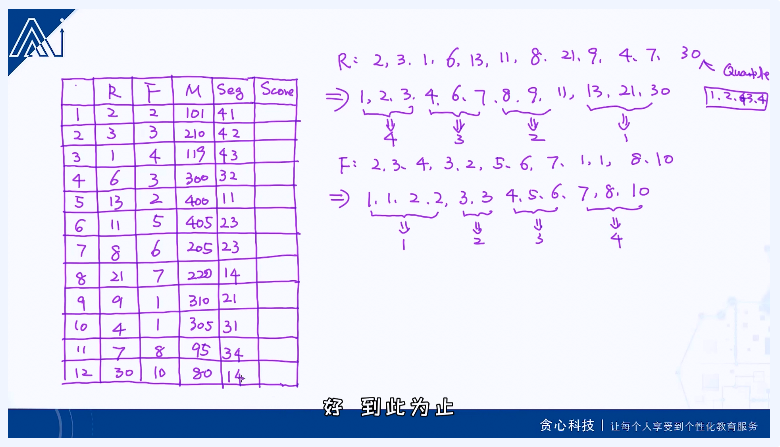 R: 2, 3. 1, 6, 13, 11, 8. 21. 9, 4. 7, 30
Quantile
1. 2. 3. 4
⇒ 1, 2, 3. 4. 6. 7. 8. 9. 11, 13. 21. 30
4 3 2 1
F: 2, 3. 4, 3. 2, 5. 6. 7. 1, 1, 8. 10
⇒ 1, 1. 2. 2, 3. 3 4, 5. 6. 7, 8. 10
1 2 3 4
R F M Seg Score
1 2 2 101 41
2 3 3 210 42
3 1 4 119 43
4 6 3 300 32
5 13 2 400 11
6 11 5 405 23
7 8 6 205 23
8 21 7 220 14
9 9 1 310 21
10 4 1 305 31
11 7 8 95 34
12 30 10 80 14
好 到此为止
贪心科技 | 让每个人享受到个性化教育服务